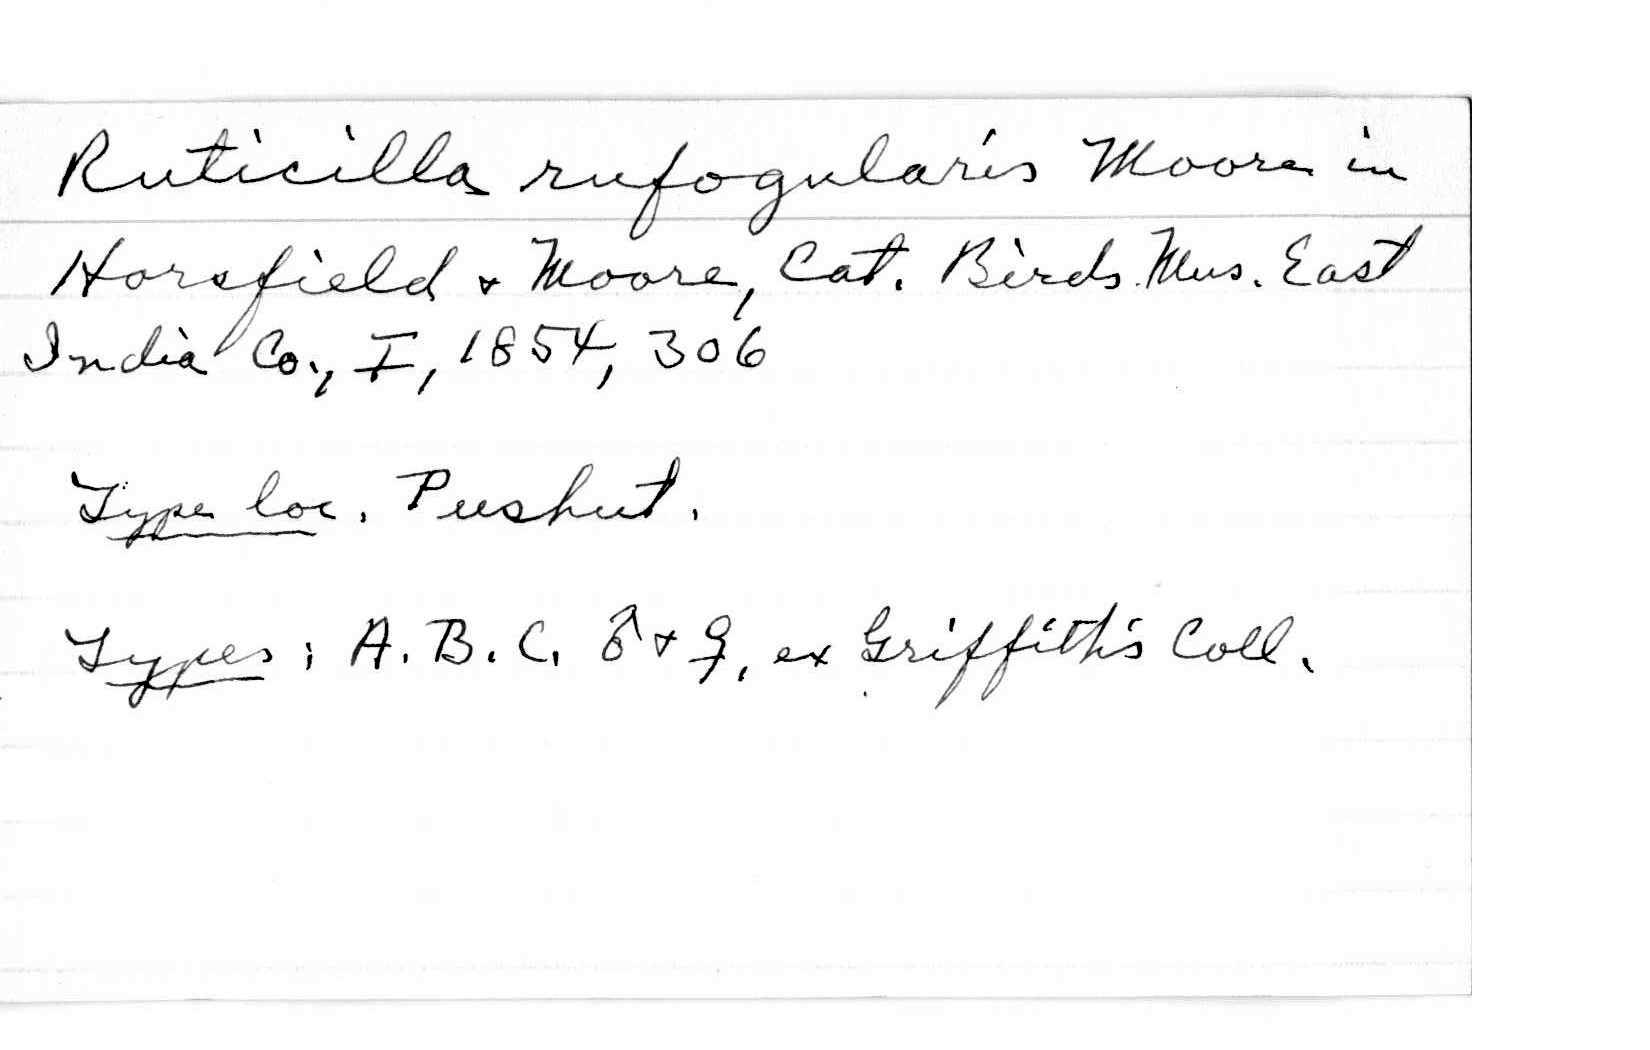 Ruticilla rufogularis Moore in
Horsfield & Moore, Cat. Birds Mus. East
India Co., I, 1854, 306
Type loc. Pushut.
Types: A. B. C. ♂ & ♀, ex Griffith's Coll.